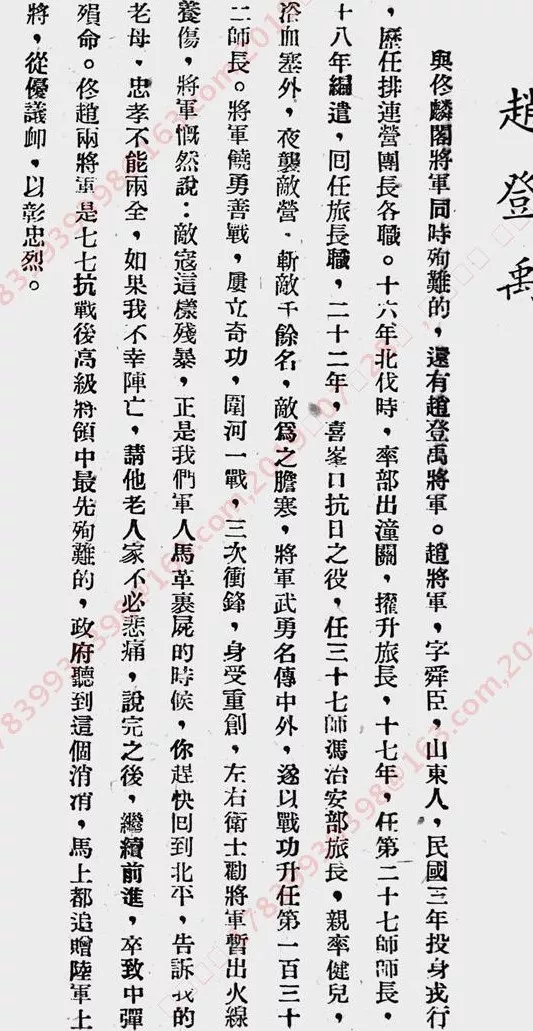 趙登禹
與佟麟閣將軍同時殉難的，還有趙登禹將軍。趙將軍，字舜臣，山東人，民國三年投身戎行
，歷任排連營團長各職。十六年北伐時，率部出潼關，擢升旅長，十七年，任第二十七師師長，
十八年編遣，回任旅長職，二十二年，喜峯口抗日之役，任三十七師馮治安部旅長，親率健兒，
浴血塞外，夜襲敵營．斬敵千餘名，敵爲之膽寒，將軍武勇名傳中外，遂以戰功升任第一百三十
二師長。將軍饒勇善戰，屢立奇功，圍河一戰，三次衝鋒，身受重創，左右衛士勸將軍暫出火線
養傷，將軍慨然說：敵寇這樣殘暴，正是我們軍人馬革裹屍的時候，你趕快回到北平，告訴我的
老母．忠孝不能兩全，如果我不幸陣亡，請他老人家不必悲痛，說完之後，繼續前進，卒致中彈
殞命。佟趙兩將軍是七七抗戰後高級將領中最先殉難的，政府聽到這個消息，馬上都追贈陸軍上
將，從優議卹，以彰忠烈。